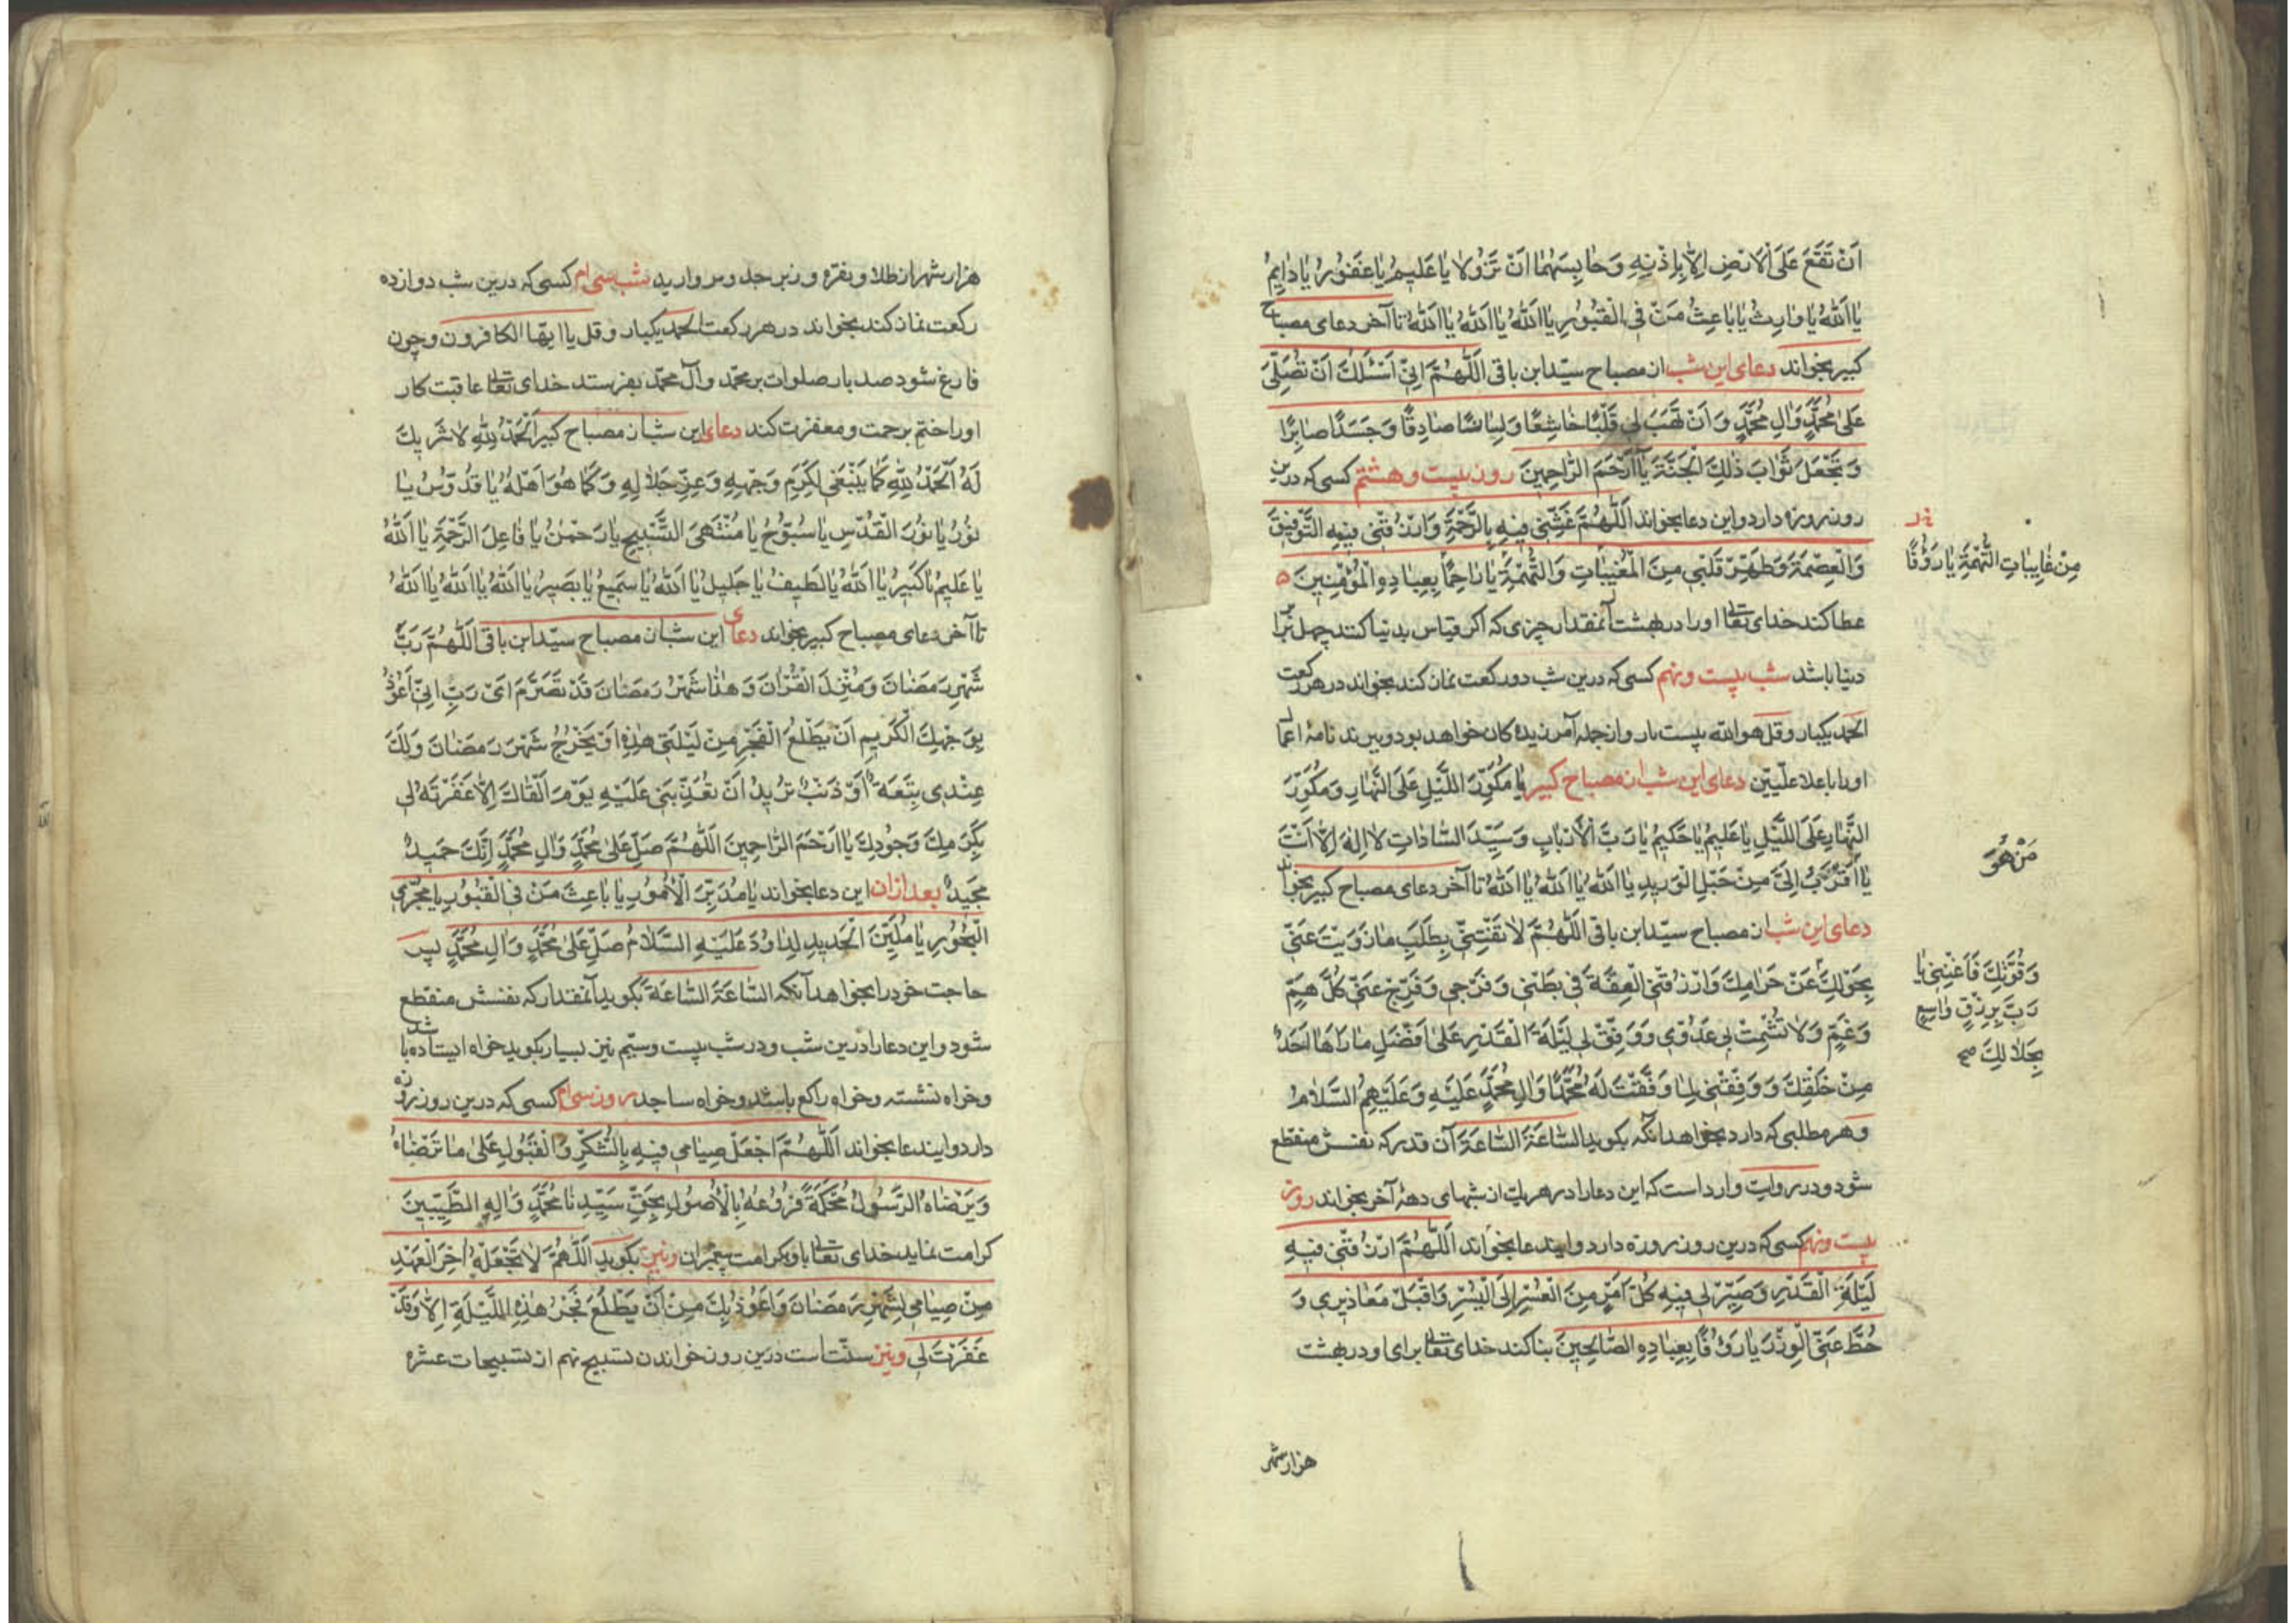 اَنْ تَقَعَ عَلَى الْاَرْضِ اِلَّا بِاِذْنِهِ وَحَابِسَهُمَا اَنْ تَزُولَا يَا عَلِيمُ يَا غَفُورُ يَا دَايِمُ
يَا اَللّٰهُ يَا وَارِثُ يَا بَاعِثُ مَنْ فِي الْقُبُورِ يَا اَللّٰهُ يَا اَللّٰهُ يَا اَللّٰهُ تا آخر دعای مصباح
کبیر بخواند دعای این شب از مصباح سیّد ابن باقی اَللّٰهُمَّ اِنِّي اَسْئَلُكَ اَنْ تُصَلِّيَ
عَلٰى مُحَمَّدٍ وَاٰلِ مُحَمَّدٍ وَاَنْ تَهَبَ لِي قَلْبًا خَاشِعًا وَلِسَانًا صَادِقًا وَجَسَدًا صَابِرًا
وَتَجْعَلَ ثَوَابَ ذٰلِكَ الْجَنَّةَ يَا اَرْحَمَ الرَّاحِمِينَ روز بیست و هشتم کسی که درین
روز روزه دارد و این دعا بخواند اَللّٰهُمَّ غَشِّنِي فِيهِ بِالرَّحْمَةِ وَارْزُقْنِي فِيهِ التَّوْفِيقَ
وَالْعِصْمَةَ وَطَهِّرْ قَلْبِي مِنَ الْمُغَيِّبَاتِ وَالتُّهْمَةِ يَا رَاحِمًا بِعِبَادِهِ الْمُؤْمِنِينَ
مِنْ غَايِبَاتِ التُّهْمَةِ يَا رَؤُفًا
عطا کند خدای تعالی او را در بهشت آنمقدار چیزی که اکر قیاس بدنیا کنند چهل برابر
دنیا باشد شب بیست و نهم کسی که درین شب دو رکعت نماز کند بخواند در هر رکعت
الحمد یکبار و قل هو الله بیست بار و از جمله آمرزیده کان خواهد بود و ببرند نامهٔ اعمال
او را با علا علّیین دعای این شب از مصباح کبیر يَا مُكَوِّرَ اللَّيْلِ عَلَى النَّهَارِ وَمُكَوِّرَ
النَّهَارِ عَلَى اللَّيْلِ يَا عَلِيمُ يَا حَكِيمُ يَا رَبَّ الْاَرْبَابِ وَسَيِّدَ السَّادَاتِ لَا اِلٰهَ اِلَّا اَنْتَ
مَنْ هُوَ
يَا اَقْرَبُ اِلَيَّ مِنْ حَبْلِ الْوَرِيدِ يَا اَللّٰهُ يَا اَللّٰهُ يَا اَللّٰهُ تا آخر دعای مصباح کبیر بخواند
دعای این شب از مصباح سیّد ابن باقی اَللّٰهُمَّ لَا تَفْتِنِّي بِطَلَبِ مَا زَوَيْتَ عَنِّي
بِحَوْلِكَ عَنْ حَرَامِكَ وَارْزُقْنِي الْعِفَّةَ فِي بَطْنِي وَفَرْجِي وَفَرِّجْ عَنِّي كُلَّ هَمٍّ
وَقُوَّتِكَ فَاَغْنِنِي يَا
رَبِّ بِرِزْقٍ وَاسِعٍ
بِحَلَالِكَ صح
وَغَمٍّ وَلَا تُشْمِتْ بِي عَدُوِّي وَوَفِّقْ لِي لَيْلَةَ الْقَدْرِ عَلٰى اَفْضَلِ مَا رَاٰهَا اَحَدٌ
مِنْ خَلْقِكَ وَوَفِّقْنِي لِمَا وَفَّقْتَ لَهُ مُحَمَّدًا وَاٰلِ مُحَمَّدٍ عَلَيْهِ وَعَلَيْهِمُ السَّلَامُ
و هر مطلبی که دارد بخواهد آنکه بکوید السَّاعَةَ السَّاعَةَ آن قدر که نفسش منقطع
شود و در روایت وارد است که این دعا را در هر یك از شبهای دههٔ آخر بخواند روز
بیست و نهم کسی که درین روز روزه دارد و ایندعا بخواند اَللّٰهُمَّ ارْزُقْنِي فِيهِ
لَيْلَةَ الْقَدْرِ وَصَيِّرْ لِي فِيهِ كُلَّ اَمْرٍ مِنَ الْعُسْرِ اِلَى الْيُسْرِ وَاقْبَلْ مَعَاذِيرِي وَ
حُطَّ عَنِّي الْوِزْرَ يَا رَؤُفًا بِعِبَادِهِ الصَّالِحِينَ بنا کند خدای تعالی برای او در بهشت
هزار شهر
هزار شهر از طلا و نقره و زبرجد و مروارید شب سی ام کسی که درین شب دوازده
رکعت نماز کند بخواند در هر رکعت الحمد یکبار و قل یا ایّها الکافرون و چون
فارغ شود صد بار صلوات بر محمّد و آل محمّد بفرستد خدای تعالی عاقبت کار
او را ختم برحمت و مغفرت کند دعای این شب از مصباح کبیر اَلْحَمْدُ لِلّٰهِ لَا شَرِيكَ
لَهُ اَلْحَمْدُ لِلّٰهِ كَمَا يَنْبَغِي لِكَرَمِ وَجْهِهِ وَعِزِّ جَلَالِهِ وَكَمَا هُوَ اَهْلُهُ يَا قُدُّوسُ يَا
نُورُ يَا نُورَ الْقُدْسِ يَا سُبُّوحُ يَا مُنْتَهَى التَّسْبِيحِ يَا رَحْمٰنُ يَا فَاعِلَ الرَّحْمَةِ يَا اَللّٰهُ
يَا عَلِيمُ يَا كَبِيرُ يَا اَللّٰهُ يَا لَطِيفُ يَا جَلِيلُ يَا اَللّٰهُ يَا سَمِيعُ يَا بَصِيرُ يَا اَللّٰهُ يَا اَللّٰهُ يَا اَللّٰهُ
تا آخر دعای مصباح کبیر بخواند دعای این شب از مصباح سیّد ابن باقی اَللّٰهُمَّ رَبَّ
شَهْرِ رَمَضَانَ وَمُنْزِلَ الْقُرْاٰنَ وَهٰذَا شَهْرُ رَمَضَانَ قَدْ تَصَرَّمَ اَيْ رَبِّ اِنِّي اَعُوذُ
بِوَجْهِكَ الْكَرِيمِ اَنْ يَطْلُعَ الْفَجْرُ مِنْ لَيْلَتِي هٰذِهِ اَوْ يَخْرُجَ شَهْرُ رَمَضَانَ وَلَكَ
عِنْدِي تَبِعَةٌ اَوْ ذَنْبٌ تُرِيدُ اَنْ تُعَذِّبَنِي عَلَيْهِ يَوْمَ اَلْقَاكَ اِلَّا غَفَرْتَهُ لِي
بِكَرَمِكَ وَجُودِكَ يَا اَرْحَمَ الرَّاحِمِينَ اَللّٰهُمَّ صَلِّ عَلٰى مُحَمَّدٍ وَاٰلِ مُحَمَّدٍ اِنَّكَ حَمِيدٌ
مَجِيدٌ بعد ازان این دعا بخواند يَا مُدَبِّرَ الْاُمُورِ يَا بَاعِثَ مَنْ فِي الْقُبُورِ يَا مُجْرِيَ
الْبُحُورِ يَا مُلَيِّنَ الْحَدِيدِ لِدَاوُدَ عَلَيْهِ السَّلَامُ صَلِّ عَلٰى مُحَمَّدٍ وَاٰلِ مُحَمَّدٍ پس
حاجت خود را بخواهد آنکه السَّاعَةَ السَّاعَةَ بکوید آنمقدار که نفسش منقطع
شود و این دعا را درین شب و در شب بیست و سیّم نیز بسیار بکوید خواه ایستاده باشد
و خواه نشسته و خواه راکع باشد و خواه ساجد روز سی ام کسی که درین روز روزه
دارد و ایندعا بخواند اَللّٰهُمَّ اجْعَلْ صِيَامِي فِيهِ بِالشُّكْرِ وَالْقَبُولِ عَلٰى مَا تَرْضَاهُ
وَيَرْضَاهُ الرَّسُولُ مُحْكَمَةً فُرُوعُهُ بِالْاُصُولِ بِحَقِّ سَيِّدِنَا مُحَمَّدٍ وَاٰلِهِ الطَّيِّبِينَ
کرامت نماید خدای تعالی باو کرامت پیغمبران و نیز بکوید اَللّٰهُمَّ لَا تَجْعَلْهُ اٰخِرَ الْعَهْدِ
مِنْ صِيَامِي لِشَهْرِ رَمَضَانَ وَاَعُوذُ بِكَ مِنْ اَنْ يَطْلُعَ فَجْرُ هٰذِهِ اللَّيْلَةِ اِلَّا وَقَدْ
غَفَرْتَ لِي و نیز سنّت است درین روز خواندن تسبیح نهم از تسبیحات عشره